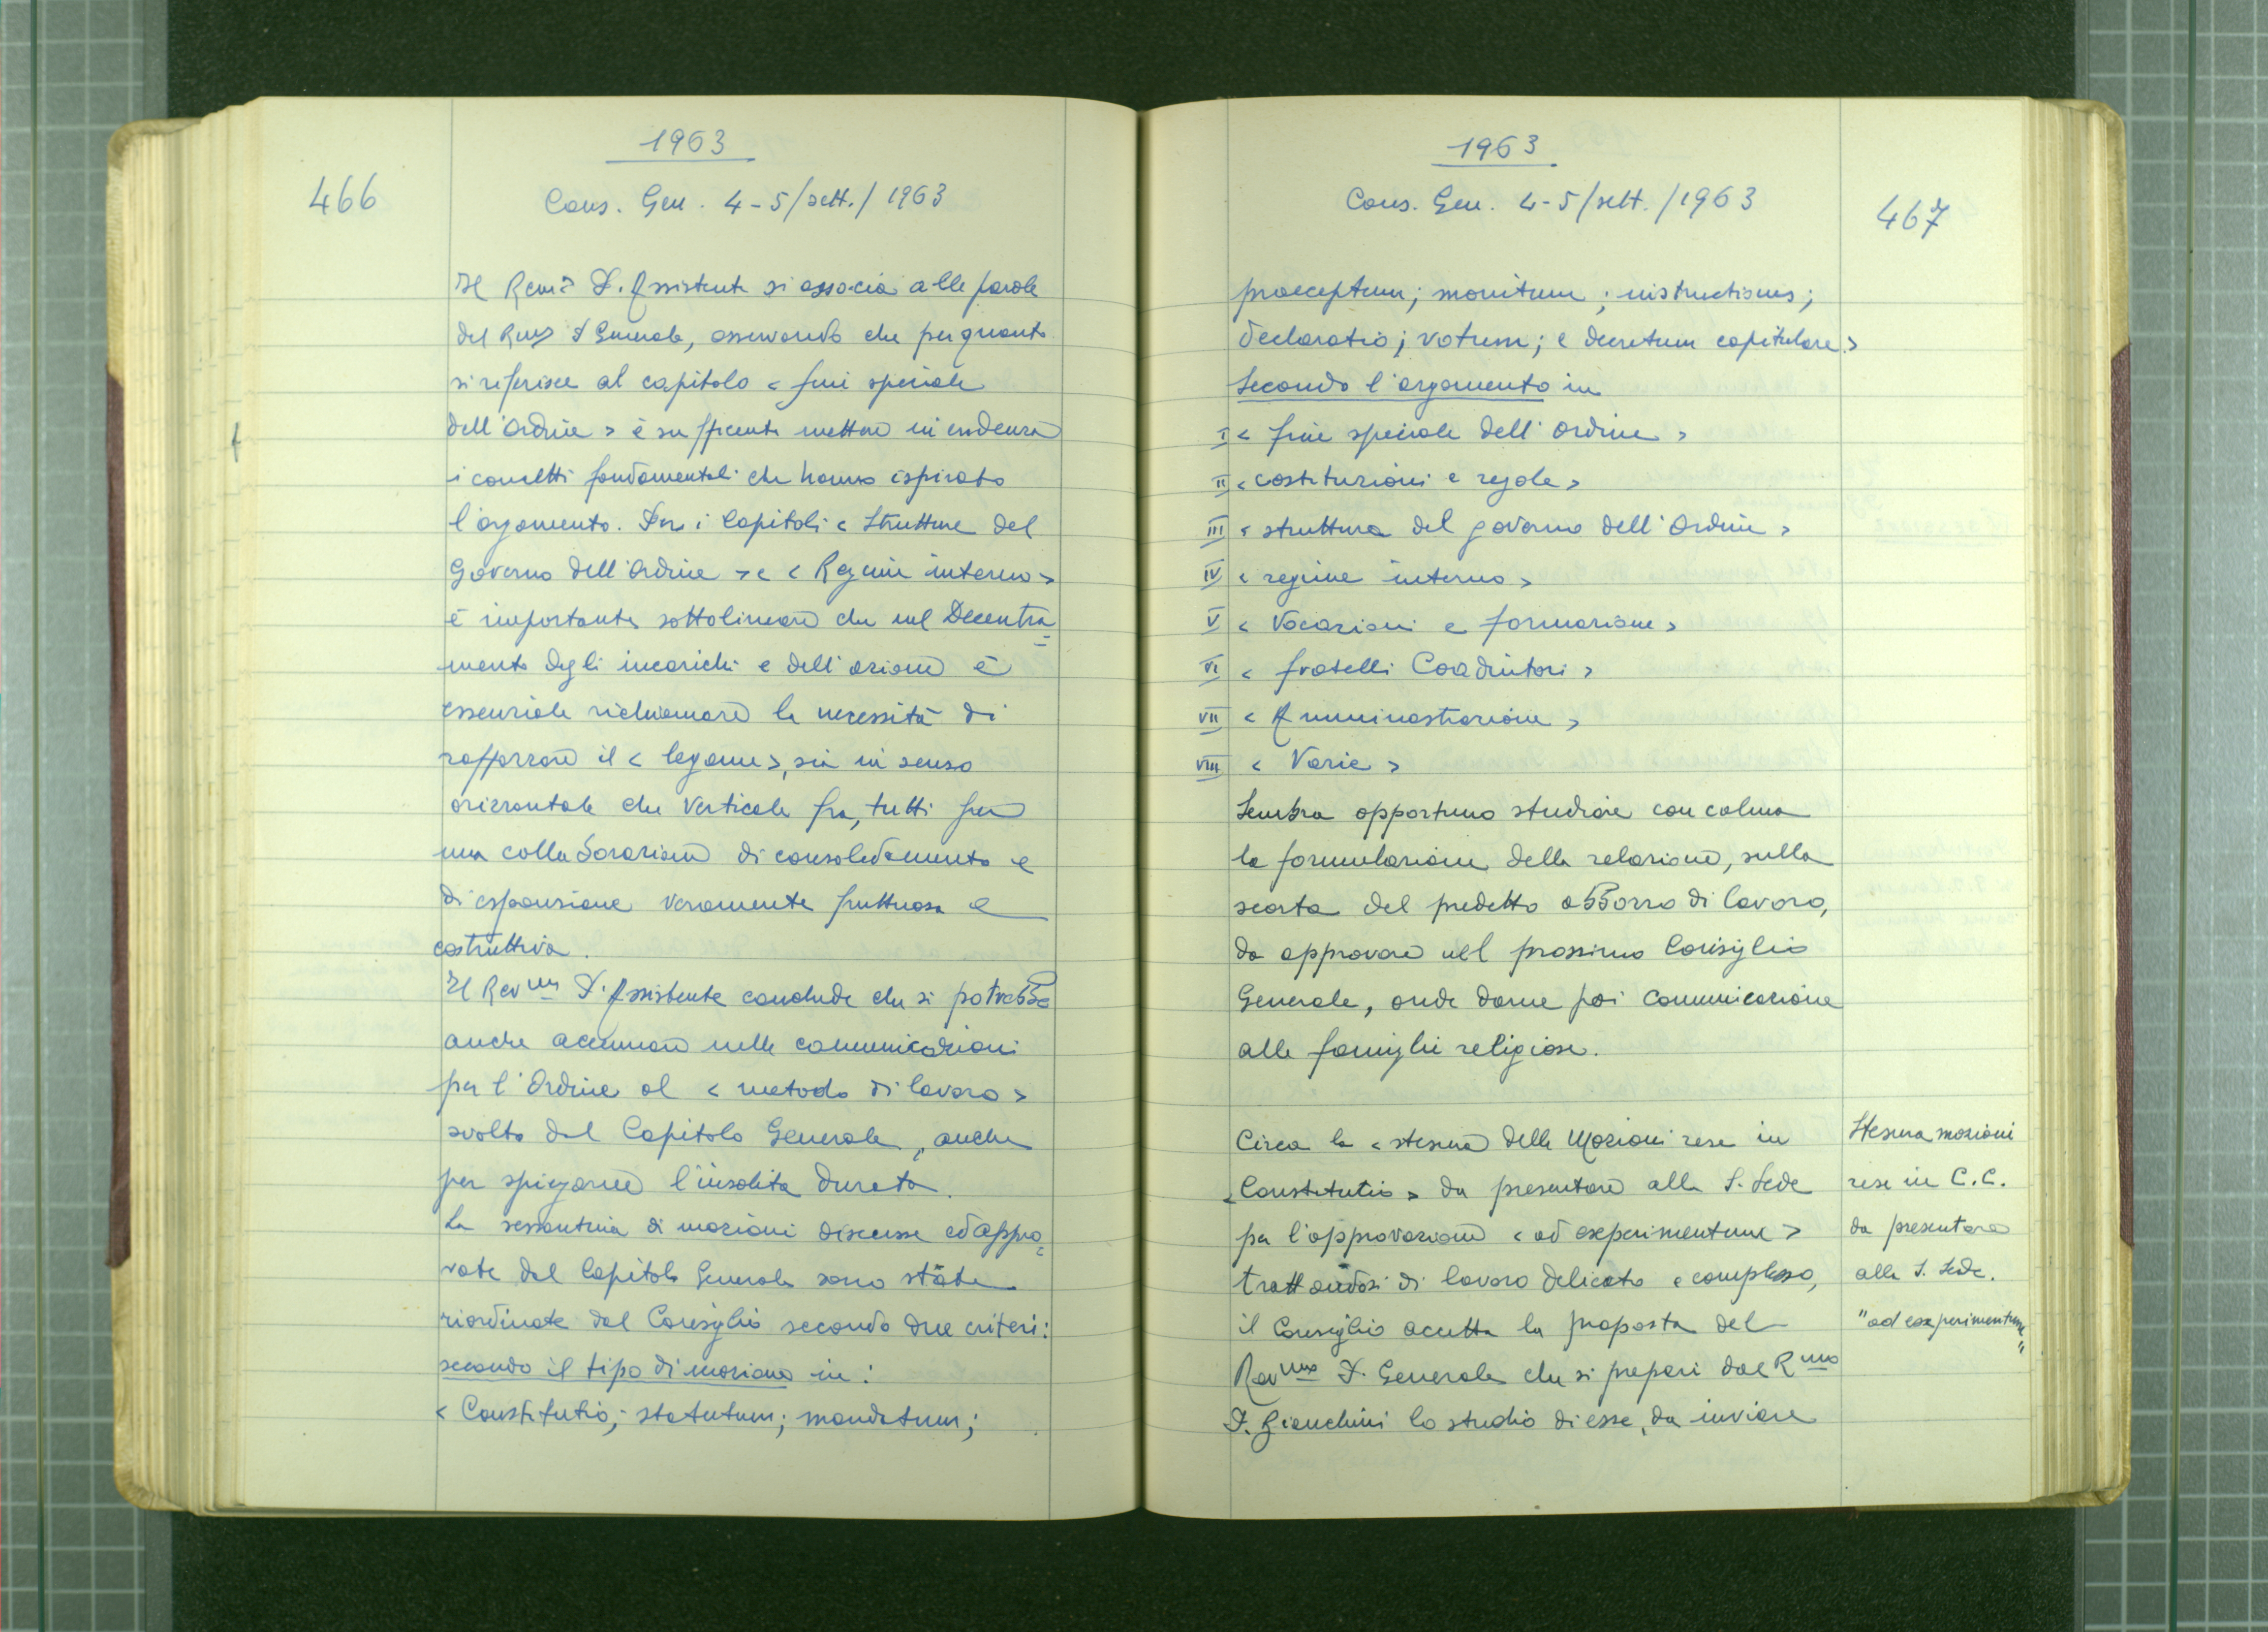 466
1963
Cons. Gen. 4-5/sett./1963
Il Rev.mo P. Assistente si associa alle parole
del Rev.mo P. Generale, osservando che per quanto
si riferisce al capitolo < fini speciale
dell'Ordine > è sufficiente mettere in evidenza
i concetti fondamentali che hanno ispirato
l'argomento. Per i Capitoli < Strutture del
Governo dell'Ordine > e < Regime interno >
è importante sottolineare che nel Decentra=
mento degli incarichi e dell'azione è
essenziale richiamare la necessità di
rafforzare il < legame >, sia in senso
orizzontale che verticale fra tutti per
una collaborazione di consolidamento e
di espansione veramente fruttuosa e
costruttiva.
Il Rev.mo P. Assistente conclude che si potrebbe
anche accennare nelle comunicazioni
per l'Ordine al < metodo di lavoro >
svolto dal Capitolo Generale, anche
per spiegarne l'insolita durata.
La sessantina di mozioni discusse ed appro=
vate dal Capitolo Generale sono state
riordinate dal Consiglio secondo due criteri:
secondo il tipo di mozione in:
< Constitutio; statutum; mandatum;
1963
Cons. Gen. 4-5/sett./1963
467
praeceptum; monitum; instructionis;
declaratio; votum; e decretum capitulare >
Secondo l'argomento in
I < fine speciale dell'Ordine >
II < costituzioni e regole >
III < struttura del governo dell'Ordine >
IV < regime interno >
V < Vocazioni e formazione >
VI < fratelli Coadiutori >
VII < Amministrazione >
VIII < Varie >
Sembra opportuno studiare con calma
la formulazione della relazione, sulla
scorta del predetto abbozzo di lavoro,
da approvare nel prossimo Consiglio
Generale, onde darne poi comunicazione
alle famiglie religiose.
Circa la < stesura delle Mozioni rese in
< Constitutio > da presentare alla S. Sede
per l'approvazione < ad experimentum >
trattandosi di lavoro delicato e complesso,
il Consiglio accetta la proposta del
Rev.mo P. Generale che si prepari dal R.mo
P. Bianchini lo studio di esse, da inviare
Stesura mozioni
rese in C.C.
da presentare
alla S. Sede.
"ad experimentum"